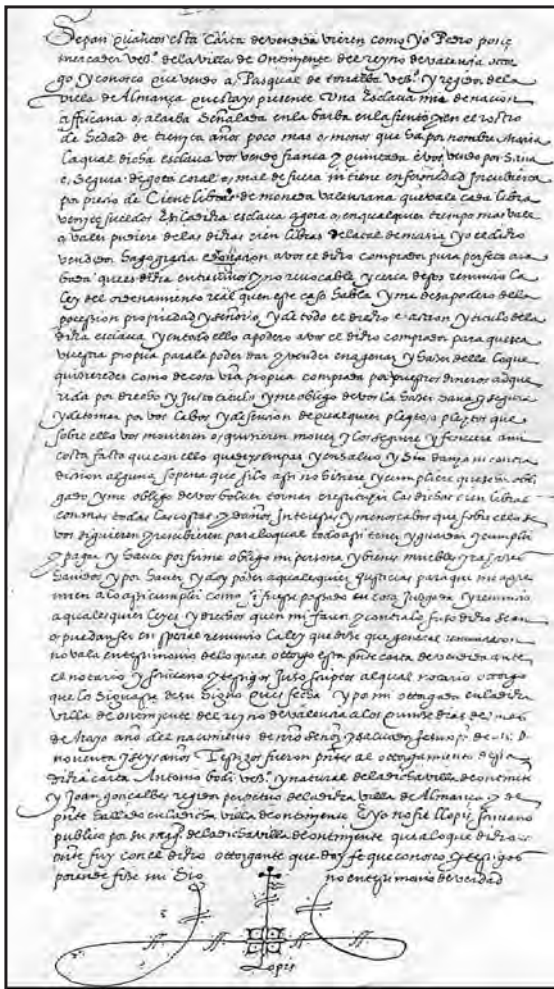 Sepan quantos esta Carta de vendida vieren como yo Pedro
mercader vezº de la villa de Ontiniente del reyno de Valençia otor
go y conosco que vendo a Pasqual de vezº y regidor de la
villa de Almança questays presente Una Esclava mia de nacion
africana o alarba señalada en la barba en la frente y en el rostro
de hedad de treynta años poco mas o menos que ha por nombre Maria
la qual dicha esclava vos vendo franca y quintada e vos vendo por sana
e segura de gota coral o mal de fuera ni tiene enfermedad
por precio de Cient libras de moneda valençiana que vale cada libra
veynte sueldos E si la dicha esclava agora o en qualquier tiempo mas vale
o valer pudiere de las dichas cien libras de la tal demasia yo el dicho
vendedor hago graçia e donaçion a vos el dicho comprador pura perfeta aca
bada ques dicha entre vivos y no revocable y cerca desto renunçio la
Ley del ordenamiento real quen este caso habla y me desapodero de la
posesion propiedad y señorio y de todo el drecho e action y titulo de la
dicha esclava y en todo ello apodero a vos el dicho comprador para que sea
vuestra propia para la poder dar y vender enagenar y hazer della lo que
quisieredes como de cosa vra propia comprada por vuestros dineros adque
rida por drecho y justo titulo y me obligo de vos la hazer sana y segura
y de tomar por vos la boz y defension de qualquier pleyto o pleytos que
sobre ella vos movieren o quisieren mover y los seguire y fenecere a mi
costa fasta que con ella quedeys en paz y en salvo y sin daño ni contra
dicion alguna sopena que si lo assi no hiziere y cumpliere que sea obli
gado y me obligo de vos bolver tornar e restituyr las dichas cien libras
con mas todas las costas y daños Interesses y menoscabos que sobre ello se
vos siguieren y recrecieren para lo qual todo assi tener y guardar y cumplir
y pagar y haver por firme obligo mi persona y bienes muebles y rayzes
havidos y por haver y doy poder a qualesquier justicias para que me apre
mien a lo assi cumplir como si fuesse passado en cosa juzgada y renunçio
a qualesquier leyes y drechos quen mi favor y contra lo suso dicho sean
o puedan ser en special renunçio la ley que dize que general renunciacion
no vala en testimonio de lo qual ottorgo esta pnte carta de vendida ante
el notario y scrivano y testigos Juso scriptos al qual notario ottorgo
que lo signasse de su signo ques fecha y por mi ottorgada en la dicha
villa de ontiniente del reyno de valencia a los quinze dias del mes
de Mayo año del nacimiento de nro señor y salvador Jesuxpo de
noventa y seys años Testigos fueron pntes al ottorgamiento desta
dicha carta Antonio bodi vezº y natural de la dicha villa de ontiniente
y Joan gonçalbez regidor perpetuo de la dicha villa de Almança y de
pnte hallado en la dicha villa de ontiniente E yo Llopis scrivano
publico por su magd. de la dicha villa de ontiniente que a lo que dicho es
pnte fuy con el dicho ottorgante que doy fe que conosco y testigos
porende fize mi Sig no en testimonio de verdad
Lopis